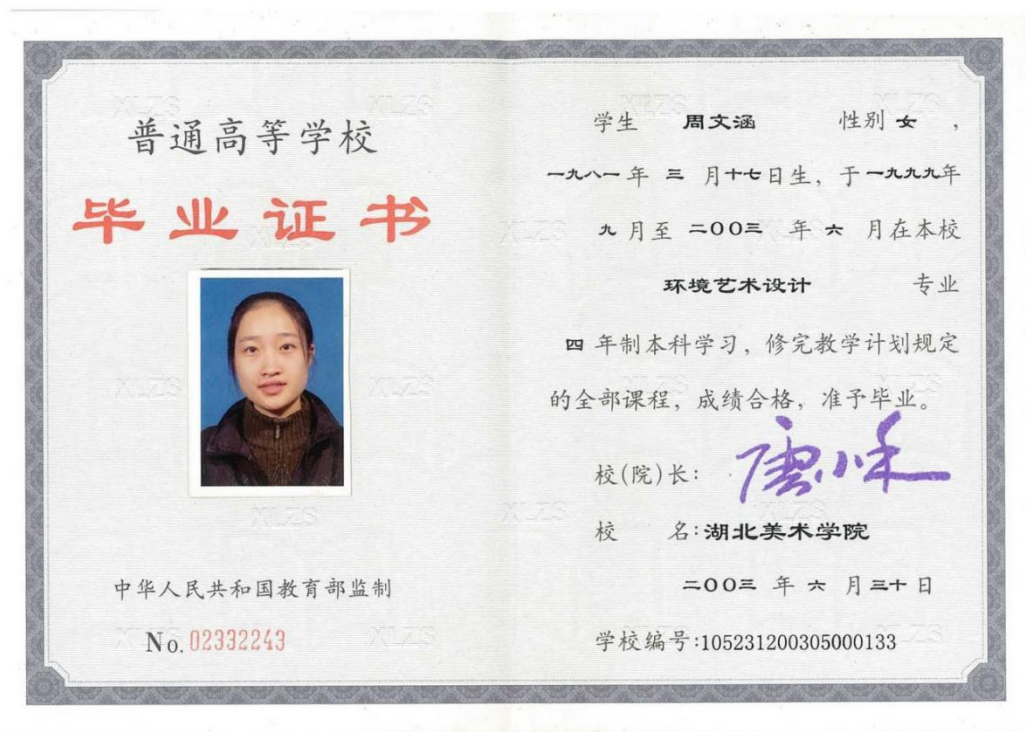 普通高等学校
毕业证书
中华人民共和国教育部监制
No. 02332243
学生 周文涵 性别 女 ,
一九八一 年 三 月十七日生, 于一九九九年
九 月至 二00三 年 六 月在本校
环境艺术设计 专业
四 年制本科学习, 修完教学计划规定
的全部课程, 成绩合格, 准予毕业。
校(院)长:
校 名:湖北美术学院
二00三 年 六 月三十日
学校编号:105231200305000133
XLZS
XLZS
XLZS
XLZS
XLZS
XLZS
XLZS
XLZS